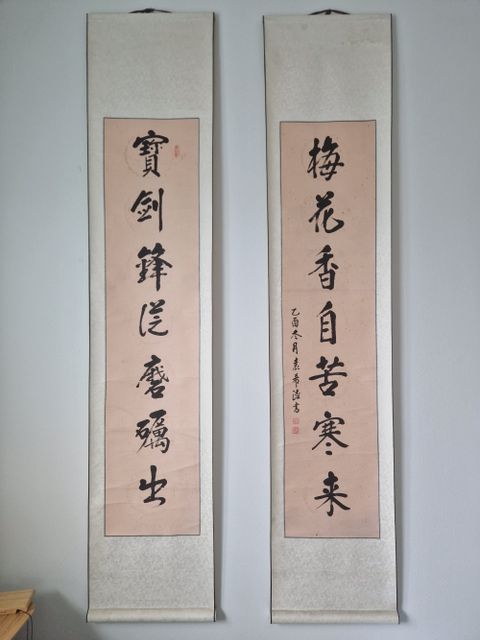 寶劍鋒從磨礪出
梅花香自苦寒来
乙酉冬月袁希濂書